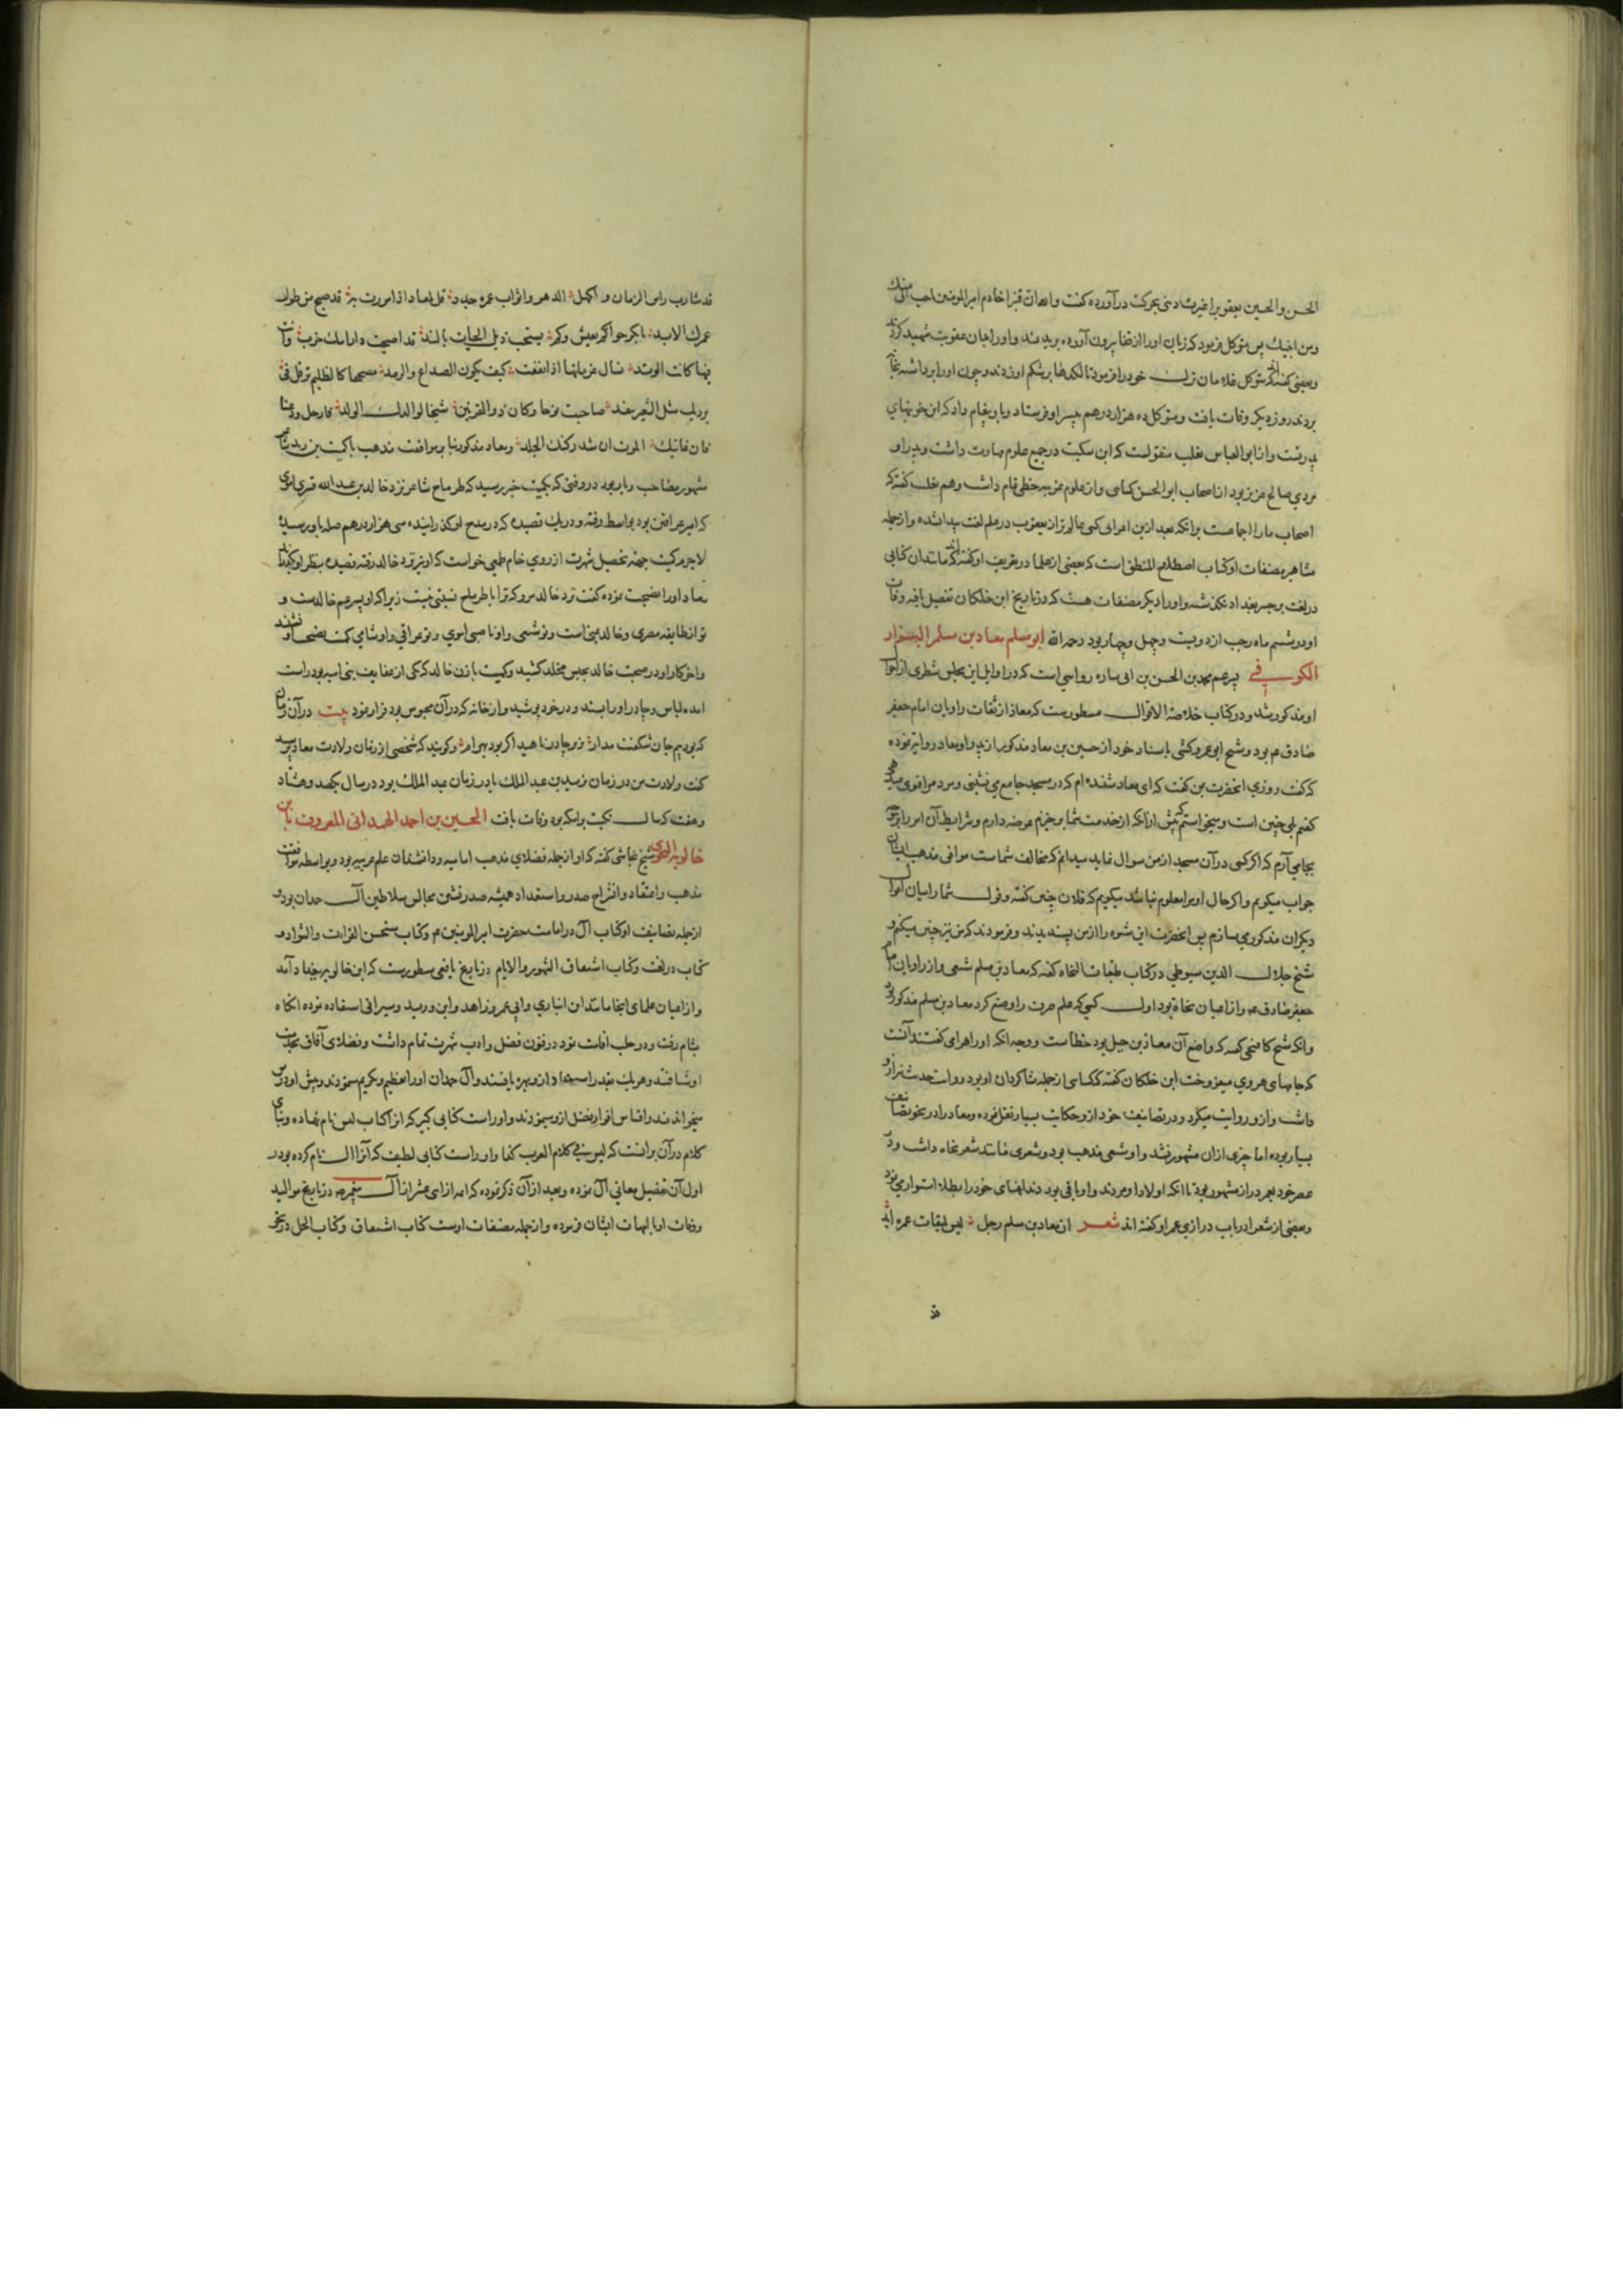 الحسن والحسین یعقوب را غیرت دینی بحرکت درآورده گفت والله ان قنبرا خادم امیرالمومنین احب الی منک
ومن ابنیک پس متوکل فرمود که زبان او را از قفا بیرون آورده بریدند و او را بان عقوبت شهید کردند
وبعضی گفته‌اند که متوکل غلامان ترک خود را فرمود تا لگدها بر شکم او زدند و چون او را برداشته بخانه
بردند روز دیگر وفات یافت و متوکل ده هزار درهم پسر او فرستاد و باو پیغام داد که این خونبهای
پدر تست و از ابوالعباس ثعلب منقولست که ابن سکیت در جمیع علوم مهارت داشت و پدر او
مردی صالح عزیز بود از اصحاب ابوالحسن کسائی و از علوم عربیه حظی تمام داشت و هم ثعلب گفته که
اصحاب ما را اجماعست برانکه بعد از ابن اعرابی کسی عالم‌تر از یعقوب در علم لغت پیدا نشده و از جمله
مشاهیر مصنفات او کتاب اصطلاح المنطق است که بعضی از علما در تعریف او گفته‌اند که مانند آن کتابی
در لغت بر جسر بغداد نگذشته و او را دیگر مصنفات هست که در تاریخ ابن خلکان تفصیل یافته وفات
او در ششم ماه رجب از دویست و چهل و چهار بود رحمه الله ابو مسلم معاذ بن مسلم الهراء
الکوفی پسر عم محمد بن الحسن بن ابی ساره رواسی است که در اوایل این مجلس شطری از احوال
او مذکور شد و در کتاب خلاصة الاقوال مسطورست که معاذ از ثقات راویان امام جعفر
صادق عم بود و شیخ ابو عمرو کشی باسناد خود از حسین بن معاذ مذکور از پدر او معاذ روایت نموده
که گفت روزی انحضرت بمن گفت که ای معاذ شنیده‌ام که در مسجد جامع می‌نشینی و مردم را فتوی میدهی
گفتم بلی چنین است و میخواستم که پیش ازانکه از خدمت شما برخیزم عرضه دارم و شرایط آن امر را بر وجه
بجا می‌آرم که اگر کسی در آن مسجد از من سوال نماید میدانم که مخالف شماست موافق مذهب ایشان
جواب میگویم و اگر حال او مرا معلوم نباشد میگویم که فلان چنین گفته و قول شما را میان اقوال
دیگران مذکور می‌سازم پس انحضرت این شیوه را از من پسندیدند و فرمودند که من نیز چنین میکنم و
شیخ جلال الدین سیوطی در کتاب طبقات النحاه گفته که معاذ بن مسلم شیعی و از راویان امام
جعفر صادق عم و از اعیان نحاة بود اول کسی که علم صرف را وضع کرد معاذ بن مسلم مذکور بود
وانکه شیخ کافیجی گفته که واضع آن معاذ بن جبل بود خطاست و وجه انکه او را هرا می‌گفتند آنست
که جامهای هروی میفروخت ابن خلکان گفته که کسائی از جمله شاگردان او بود و روایت حدیث نیز از و
داشت و از و روایت میکرد و در تصانیف خود از و حکایت بسیار نقل نموده و معاذ را در نحو تصانیف
بسیار بوده اما چیزی ازان مشهور نشد و او شیعی مذهب بود و شعری مانند شعر نحاه داشت و در
عصر خود بعمر دراز مشهور بود تا انکه اولاد او مردند و او باقی بود دندانهای خود را بطلا استوار می‌نمود
وبعضی از شعرا در باب درازی عمر او گفته اند شعر ان معاذ بن مسلم رجل لیس لمیقات عمره امد
قد
قد شاب راس الزمان و اکتهل الدهر واثواب عمره جدد قل لمعاذ اذا مررت به قد ضج من طول
عمرک الابد یا بکر حوا کم تعیش وکم یسحب ذیل الحیات یا لبد قد اصبحت دار آدم خربت وانت
فیها کانک الوتد تسال غربانها اذا نعقت کیف یکون الصداع والرمد مصححا کالظلیم ترفل فی
بردیک مثل السعیر تتقد صاحبت نوحا وکان ذو القرنین شیخا لوالدک الولد فارحل ودعنا
فان غایتک الموت وان شد رکنک الجلد ومعاذ مذکور بنابر موافقت مذهب با کمیت بن زید شاعر
مشهور مصاحب و یار بود در وقتی که بکمیت خبر رسید که طرماح شاعر نزد خالد بن عبدالله قسری اموی
که امیر عراقین بود بواسط رفته و در یک قصیده که در مدح او گذرانیده سی هزار درهم صله باو رسیده
لاجرم کمیت جهة تحصیل شهرت از روی خام طمعی خواست که او نیز نزد خالد رفته قصیده بنظر او گذراند
معاذ او را نصیحت نموده گفت نزد خالد مرو که ترا با طرماح نسبتی نیست زیرا که او پسر عم خالدست و
تو از طایفه مضری و خالد یمنی است و تو شیعی و او ناصبی اموی و تو عراقی و او شامی کمیت نصیحت او نشنید
واخر کار او در صحبت خالد بحبس مخلد کشید و کمیت با زن خالد که یکی از عفایف بنی امیه بود راست
امده لباس و چادر او را بستد و در خود پوشید و از خانه که در آن محبوس بود فرار نمود بیت در آن زمان
که بود بیم جان شکفت مدار ز چادر ناهید اگر بود بهرام و گویند که شخصی از زمان ولادت معاذ پرسید
گفت ولادت من در زمان یزید بن عبدالملک یا در زمان عبدالملک بود در سال یکصد و هشتاد
وهفت که سال نکبت برامکه بود وفات یافت الحسین بن احمد الهمدانی المعروف بابن
خالویه النحوی شیخ نجاشی گفته که او از جمله فضلای مذهب امامیه و دانشمندان علم عربیه بود و بواسطه موافقت
مذهب و اعتقاد و انشراح صدر و استعداد همیشه صدرنشین مجالس سلاطین آل حمدان بود و
ازجمله تصانیف او کتاب ال در امامت حضرت امیرالمومنین م وکتاب مستحسن القراءت والشواذ و
کتاب در لغت وکتاب اشتقاق الشهور والایام در تاریخ یافعی مسطورست که ابن خالویه ببغداد آمد
و از اعیان علمای انجا مانند ابن انباری وابی عمر زاهد وابن درید وسیرافی استفاده نموده انگاه
بشام رفت و در حلب اقامت نمود در فنون فضل وادب شهرت تمام داشت و فضلای آفاق بخدمت
او شتافتند و هر یک بقدر استعداد از و بهره یافتند و آل حمدان او را تعظیم و تکریم می‌نمودند و پیش او درس
میخواندند و اقتباس انوار فضل از و می‌نمودند و او راست کتابی کبیر که انرا کتاب لیس نام نهاده و بنای
کلام در آن برانست که لیس فی کلام العرب کذا و او راست کتابی لطیف که آنرا ال نام کرده بود در
اول آن تفصیل معانی ال نموده و بعد از آن ذکر نموده که امه ازاثنی عشر از آل پیغمبرند و تاریخ موالید
و وفات او با امهات ایشان فرموده و ازجمله مصنفات اوست کتاب اشتقاق وکتاب الجمل در نحو